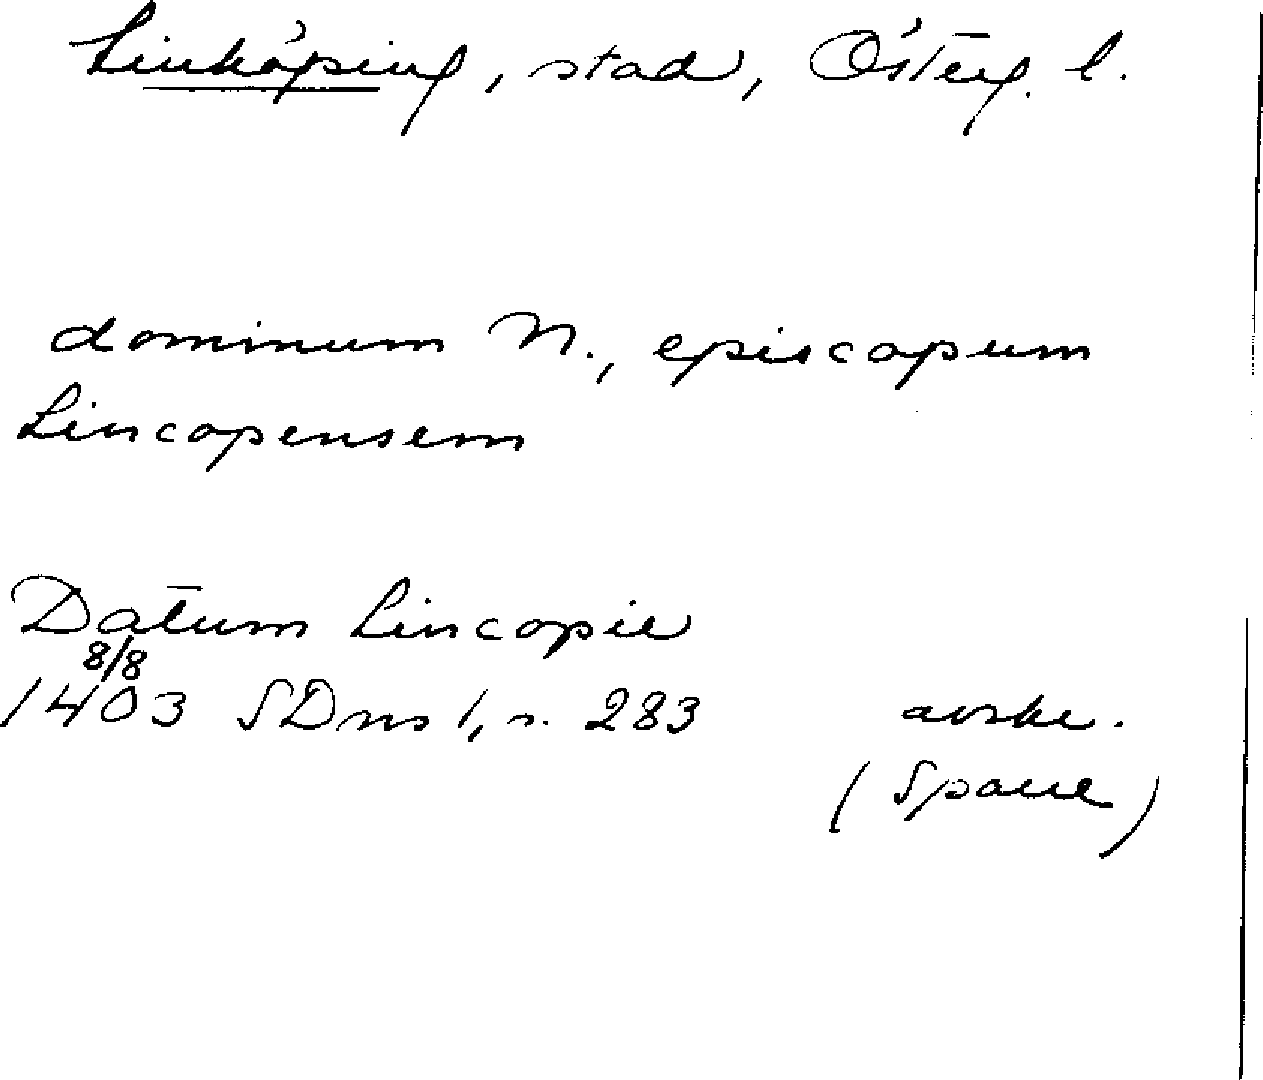 Linköping, stad, Österg. l.
dominum N., episcopum
Lincopensem
Datum Lincopie
8/8
1403 SDns 1, s. 283 avskr.